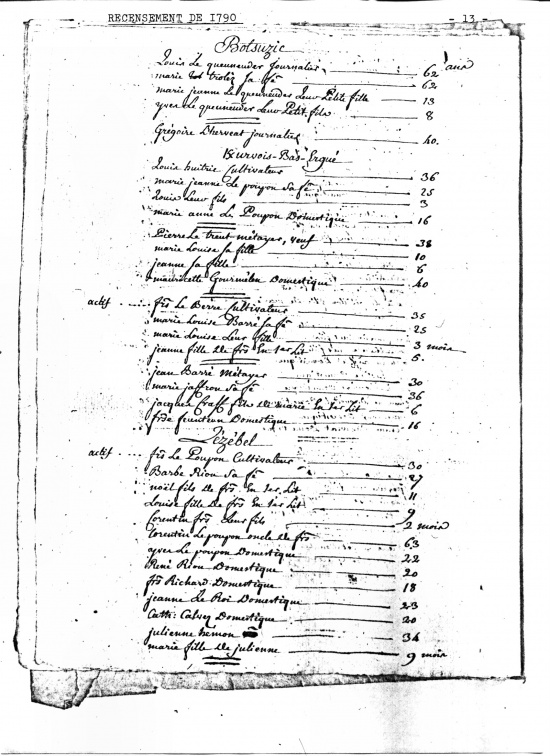 RECENSEMENT DE 1790 - 13 -
Botsuzic
Louis Le quenneuder journalier 62 ans
marie trolez Sa fe 62
marie jeanne Le quenneuder Leur Petite fille 13
yves Le quenneuder Leur Petit fils 8
Grégoire L'herveat journalier 40.
Kervois-Bas-Ergué
Louis huitric Cultivateur 36
marie jeanne Le poupon Sa fe 25
Louis Leur fils 3
marie anne Le Poupon Domestique 16
Pierre Le treut métayer, veuf 38
marie Louise Sa fille 10
jeanne Sa fille 6
mauricette Gourmelen Domestique 40
actif .... frs Le Berre Cultivateur 35
marie Louise Barré Sa fe 25
marie Louise Leur fille 3 mois
jeanne fille De frs En 1er Lit 5.
jean Barré Métayer 30
marie jaffron Sa fe 36
jacques Craff fils De marie En 1er Lit 6
frse feunteun Domestique 16
Lézébel
actif .... frs Le Poupon Cultivateur 30
Barbe Riou Sa fe 27
noël fils De frs En 1er Lit 11
Louise fille De frs En 1er Lit 9
Corentin frs Leur fils 2 mois
Corentin Le poupon oncle De frs 63
yves Le poupon Domestique 22
René Riou Domestique 20
frs Richard Domestique 18
jeanne Le Roi Domestique 23
Cath: Calvez Domestique 20
julienne hemon 34
marie fille De julienne 9 mois